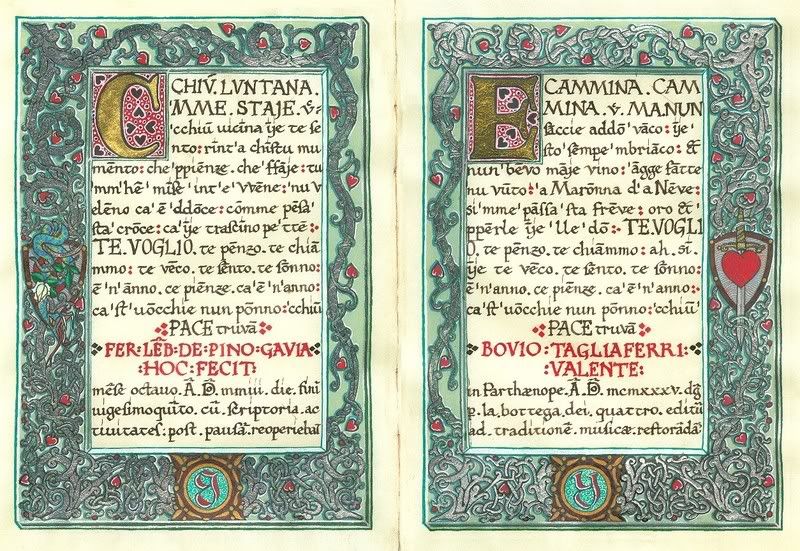 CHIV̄. LVNTANA.
'MME. STAJE. v̄~
cchiū uicina ije te se
nto: rint'a chistu mu
mēnto: che 'ppienze. che 'ffaje: tu
mm'hē' mise 'int'e 'vvēne: nu v
elēno ca' ē 'ddōce: cōmme pēsa'
sta' crōce: ca' ije trascino pe' ttē:
TE. VOGLIO. te pēnzo. te chiā
mmo: te vēco. te sēnto. te sōnno:
ē 'n'anno. ce pienze. ca' ē 'n'anno:
ca' st' uōcchie nun pōnno: 'cchiū
PACE truvā
FER: LĒB: DE: PINO: GAVIA
:HOC: FECIT:
mēse octauo. Ā. D̄. mmiii. die. finū
uigesimoquīto. cū. scriptoria. ac
tiuitates: post. pausā. reoperiebāt
E CAMMINA. CAM
MINA. v̄. MANUN
saccie addō 'vāco: ije
sto sēmpe 'mbriāco: &
nun 'bēvo māje vino: 'āgge fātte
nu vūto: 'a Marōnna d'a Nēve:
si 'mme pāssa 'sta frēve: oro &
ppērle ije 'lle dō: TE. VOGLI
O. te pēnzo. te chiāmmo: ah. si.
ije te vēco. te sēnto. te sōnno:
ē 'n'anno. ce pienze. ca' ē 'n'anno:
ca' st' vuōcchie nun pōnno: 'cchiū
PACE truvā
BOVIO: TAGLIAFERRI:
VALENTE:
in Parthænope. Ā. D̄. mcmxxxv. dg̃
p. la. bottega. dei. quattro. editū
ad. traditionē. musicæ. restorādā
Y
Y